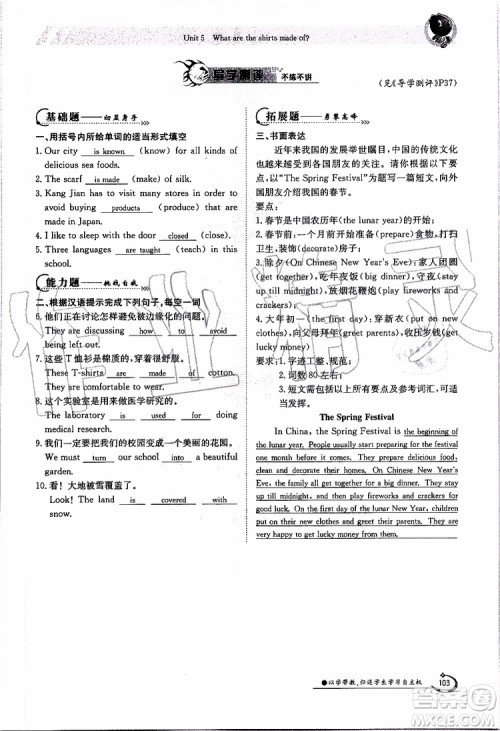 Unit 5 What are the shirts made of?
导学测评 不练不讲
(见《导学测评》P37)
基础题
一、用括号内所给单词的适当形式填空
1. Our city is known (know) for all kinds of
delicious sea foods.
2. The scarf is made (make) of silk.
3. Kang Jian has to visit many stores to
avoid buying products (produce) made
made in Japan.
4. I like to sleep with the door closed (close).
5. Three languages are taught (teach) in our
school.
能力题 挑战自我
二、根据汉语提示完成下列句子,每空一词
6. 他们正在讨论怎样避免被边缘化的问题。
They are discussing how to avoid
being left out.
7. 这些T恤衫是棉质的,穿着很舒服。
These T-shirts are made of cotton.
They're comfortable to wear.
8. 这个实验室是用来做医学研究的。
The laboratory is used for doing
medical research.
9. 我们一定要把我们的校园变成一个美丽的花园。
We must turn our school into a beautiful
garden.
10. 看!大地被雪覆盖了。
Look! The land is covered with
snow.
拓展题 勇攀高峰
三、书面表达
近年来我国的发展举世瞩目,中国的传统文化
也越来越受到各国朋友的关注。请你根据要点,
以"The Spring Festival"为题写一篇短文,向外
国朋友介绍我国的春节。
要点:
1. 春节是中国农历年(the lunar year)的开始;
2. 春节前一个月开始准备食物(prepare),打扫
卫生,装饰(decorate)房子;
3. 除夕(On Chinese New Year's Eve):家人团圆
(get together),吃年夜饭(big dinner),守夜(stay
up till midnight),放烟花鞭炮(fireworks and
crackers);
4. 大年初一(the first day):穿新衣(put on new
clothes),向父母拜年(greet parents),收压岁钱(get
lucky money)。
要求:1. 字迹工整、规范;
2. 词数80左右;
3. 短文需包括以上要点,可适当发挥。
The Spring Festival
In China, the Spring Festival is the beginning of
the lunar year. People usually start preparing
one month before it comes. They prepare delicious food,
clean and decorate their homes. On Chinese New Year's
Eve, the family all get together for a big dinner. They stay
up till midnight, and play fireworks and crackers for
good luck. On the first day of the lunar New Year, Children
put on their new clothes and greet their parents. They also
get lucky money.
以学带教,归还学生学习自主权
103